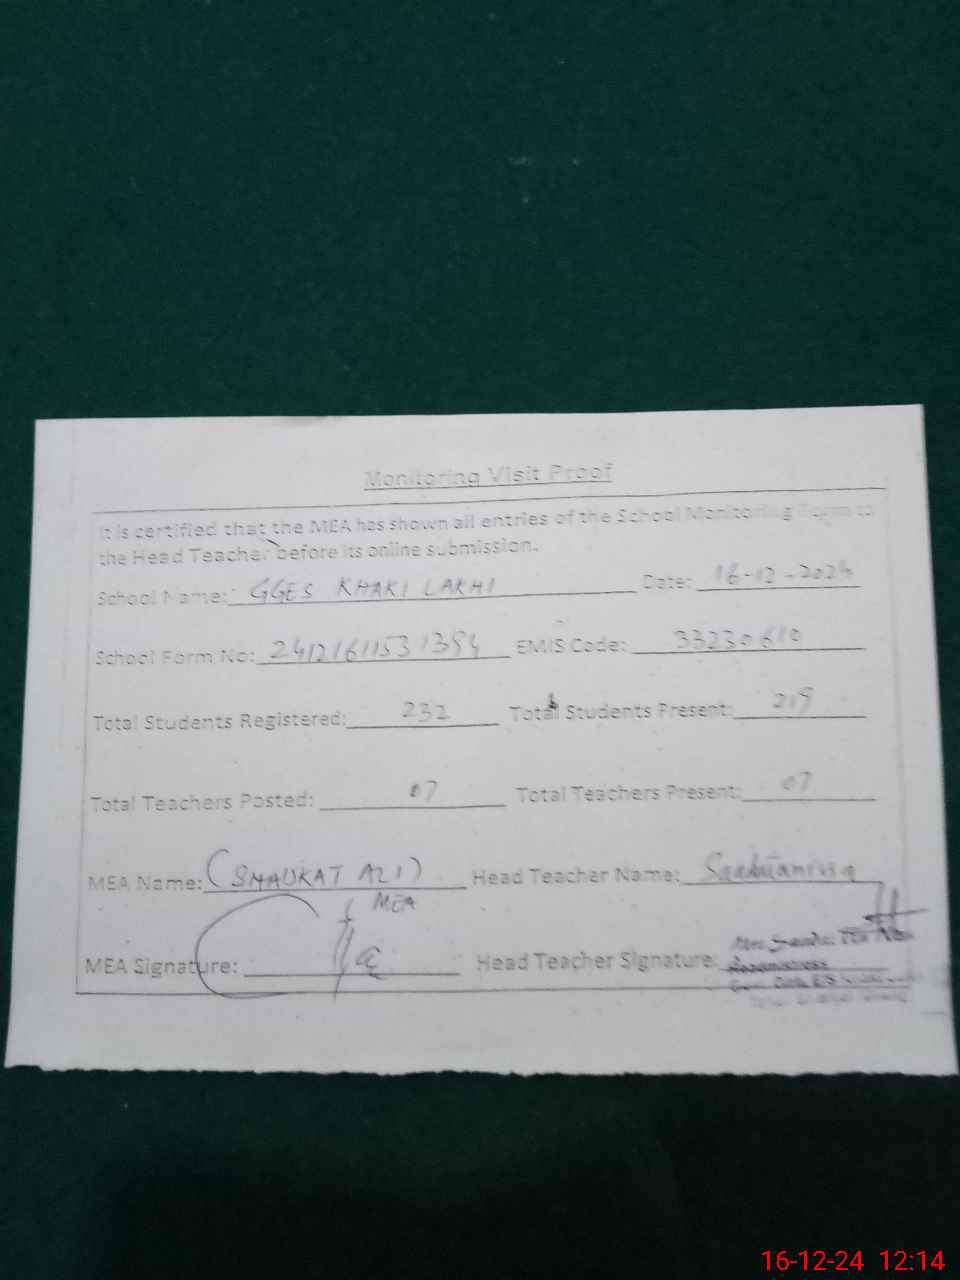 Monitoring Visit Proof
It is certified that the MEA has shown all entries of the School Monitoring Form to
the Head Teacher before its online submission.
School Name: GGES KHAKI LAKHI Date: 16-12-2024
School Form No: 24121611531394 EMIS Code: 33230610
Total Students Registered: 232 Total Students Present: 219
Total Teachers Posted: 07 Total Teachers Present: 07
MEA Name: (SHAUKAT ALI) Head Teacher Name:
MEA
MEA Signature: Head Teacher Signature:
Headmistress
16-12-24 12:14